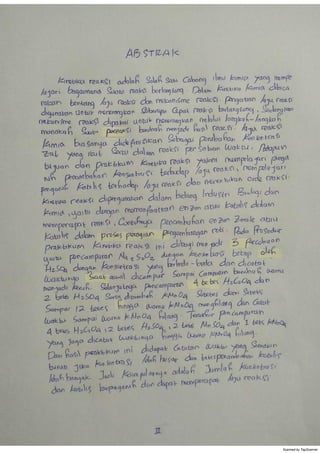 ABSTRAK
Kinetika reaksi adalah Salah Satu Cabang ilmu kimia yang mempe
lajari bagaimana Suatu reaksi berlangsung. Dalam Kinetika Kimia dibica
rakan tentang laju reaksi dan mekanisme reaksi pengaturan laju reaksi
digunakan untuk menerangkan Seberapa Cepat reaksi berlangsung. Sedangkan
mekanisme reaksi dipakai untuk menerangkan melalui langkah-langkah
manakah Suatu pereaksi berubah menjadi hasil reaksi. laju reaksi
Kimia biasanya didefinisikan Sebagai perubahan Konsentrasi
Zat yang reaksi Suatu dalam reaksi per Satuan Waktu. Adapun
tujuan dari praktikum Kinetika reaksi yakni mempelajari penga
ruh perubahan Konsentrasi terhadap laju reaksi, mempelajari
pengaruh Katalis terhadap laju reaksi dan menentukan orde reaksi.
Kinetika reaksi dipergunakan dalam bidang Industri Biologi dan
Kimia, yaitu dengan memanfaatkan enzim atau katalis dalam
mempercepat reaksi, Contohnya penambahan enzim Zimale atau
Katalis dalam proses pengembangan roti. Pada Prosedur
praktikum Kinetika reaksi ini dibagi menjadi 3 Percobaan
yaitu pencampuran Na₂S₂O₃ dengan konsentrasi tetap oleh
H₂SO₄ dengan Konsentrasi yang berbeda-beda dan dicatat
Waktunya Saat awal dicampur Sampai Campuran berubah warna
menjadi keruh. Selanjutnya pencampuran 4 tetes H₂C₂O₄ dan
2 tetes H₂SO₄ Serta ditambah KMnO₄ Setetes demi Setetes
Sampai 12 tetes hingga warna KMnO₄ menghilang dan Catat
waktu Sampai warna KMnO₄ hilang. Terakhir pencampuran
4 tetes H₂C₂O₄, 2 tetes H₂SO₄, 2 tetes MnSO₄ dan 1 tetes KMnO₄
yang Juga dicatat Waktunya hingga warna KMnO₄ hilang.
Dari hasil praktikum ini didapat Catatan waktu yang Semakin
turun Jika Konsentrasi lebih besar dan bila penambahan katalis
lebih banyak. Jadi Kesimpulannya adalah Jumlah Konsentrasi
dan katalis berpengaruh dan dapat mempercepat laju reaksi
II
Scanned by TapScanner